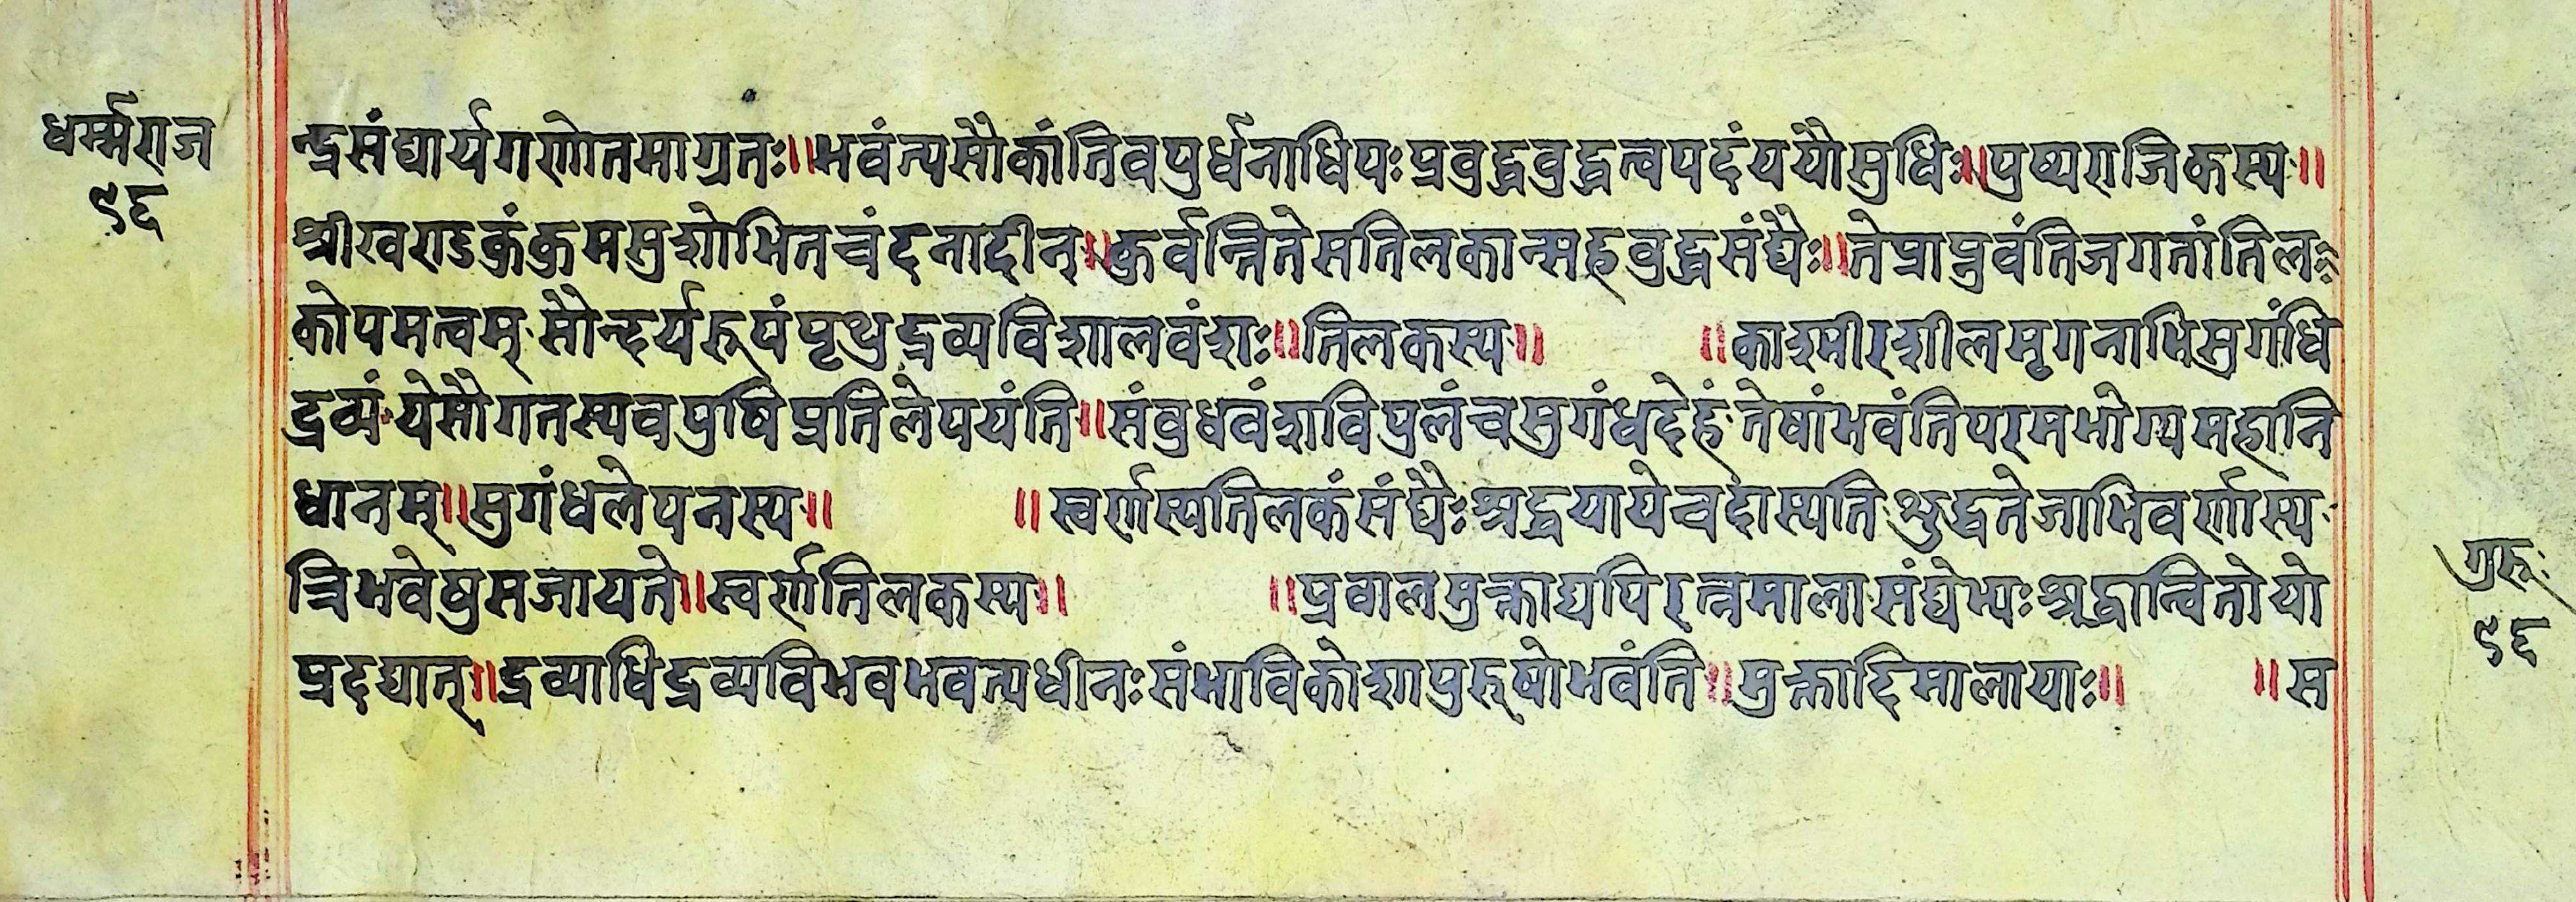 धर्म्मराज
९६
न्द्रसंघार्यगणोतमाग्रतः॥भवंत्यसौकांतिवपुर्धनाधिपःप्रवुद्धवुद्धत्वपदंययौसुधिः॥पुष्यराजिकस्य॥
श्रीखण्डकुंकुमसुशोभितचंदनादीन्॥कुर्वन्तितेसतिलकान्सहवुद्धसंघैः॥तेप्राप्नुवंतिजगतांतिल
कोपमत्वम्सौन्दर्यरूपंपृथुद्रव्यविशालवंशः॥तिलकस्य॥ ॥काश्मीरशीलमृगनाभिसुगंधि
द्रव्यंयेसौगतस्यवपुषिप्रतिलेपयंति॥संवुधवंशविपुलंचसुगंधदेहंतेषांभवंतिपरमभोग्यमहानि
धानम्॥सुगंधलेपनस्य॥ ॥स्वर्णस्यतिलकंसंघैःश्रद्धयायेचदास्यतिशुद्धतेजाभिवर्णास्य
त्रिभवेषुसजायते॥स्वर्णतिलकस्य॥ ॥प्रवालमुक्ताद्यपिरत्नमालासंघेभ्यःश्रद्धान्वितोयो
प्रदद्यात्॥द्रव्याधिद्रव्यविभवभवत्यधीनःसंभाविकोशपुरूषोभवंति॥मुक्तादिमालायाः॥ ॥स
गुरूः
९६